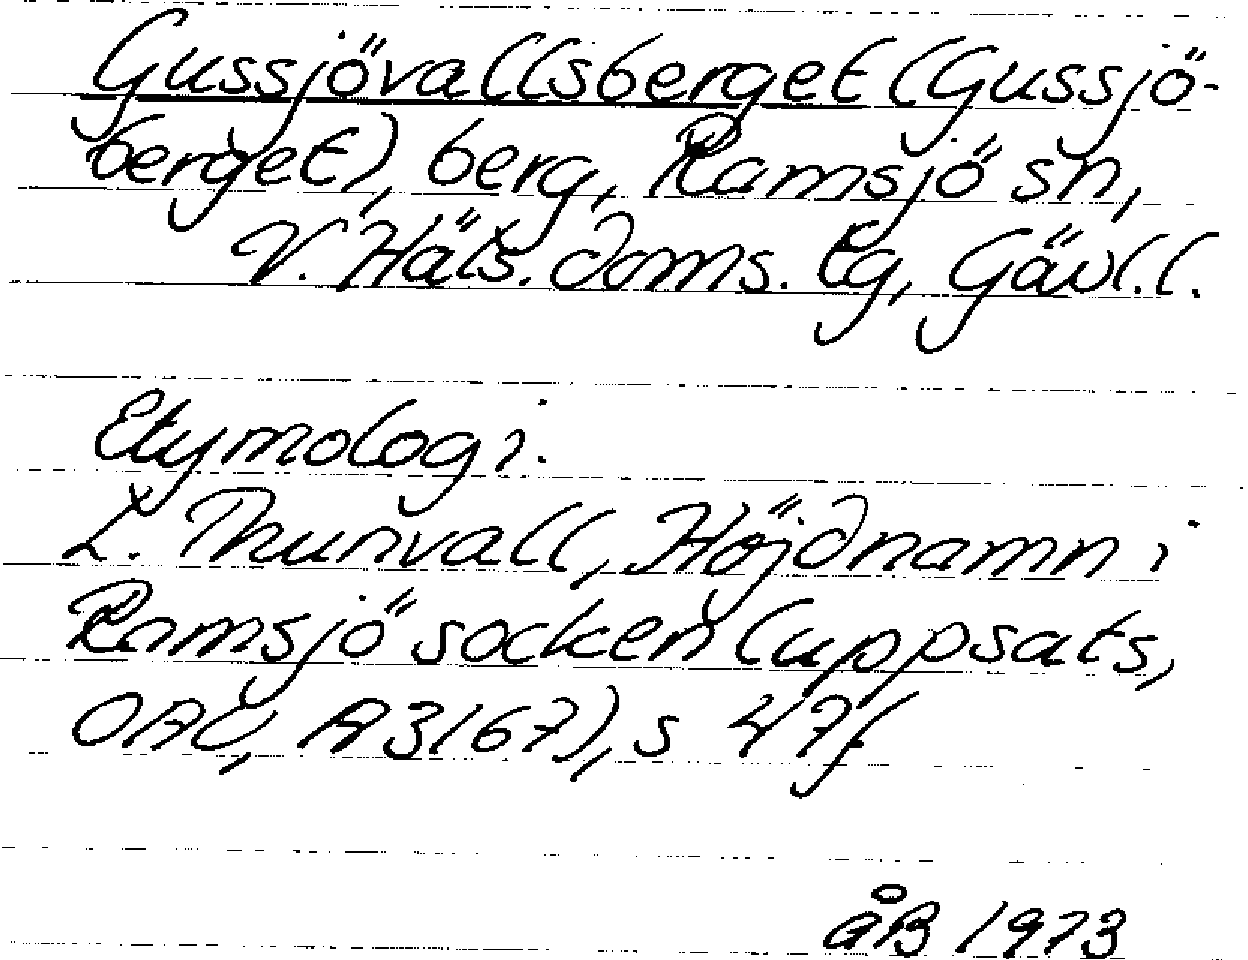 Gussjövallsberget (Gussjö-
berget), berg, Ramsjö sn,
V. Häls. doms. tg, Gävl.l.
Etymologi.
L. Thunvall, Höjdnamn i
Ramsjö socken (uppsats,
OAU, A3167), s 47f
åB 1973